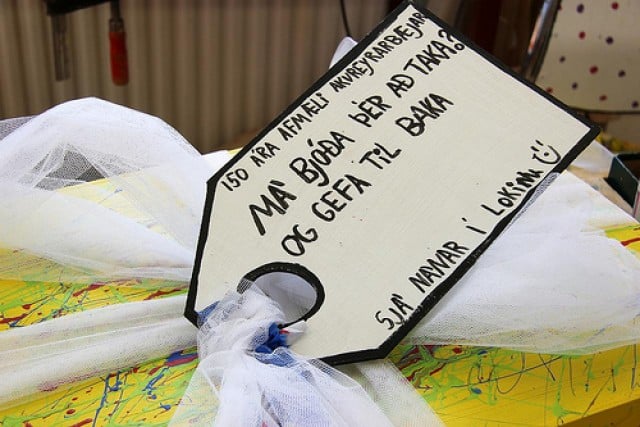 150 ÁRA AFMÆLI AKUREYRARBÆJAR
MÁ BJÓÐA ÞÉR AÐ TAKA?
OG GEFA TIL BAKA
SJÁ NÁNAR Í LOKINU